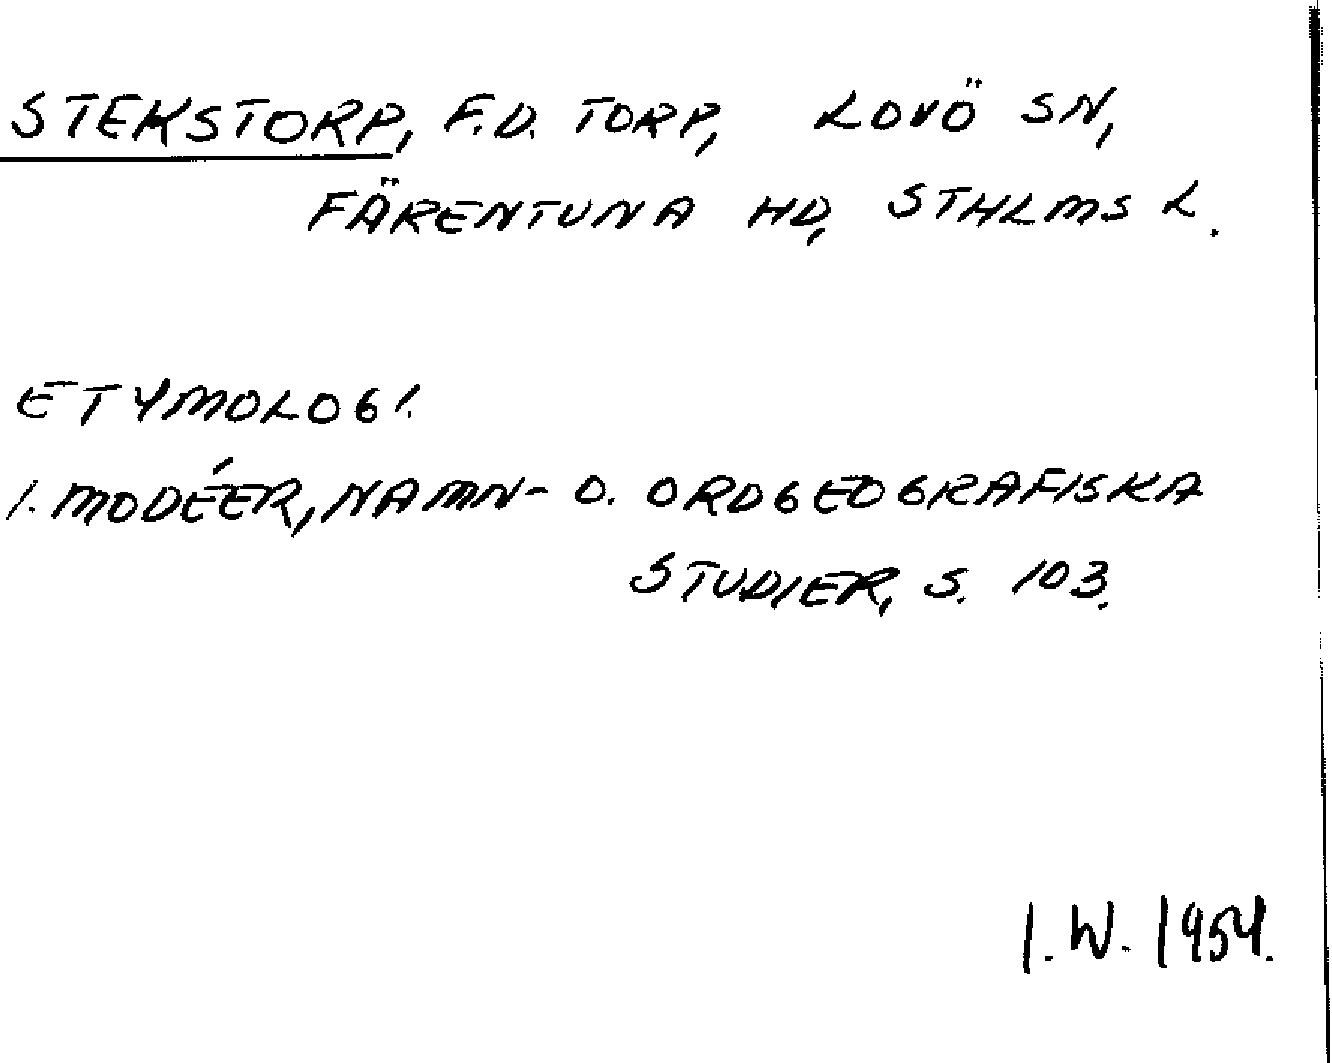 STEKSTORP, F.D. TORP, LOVÖ SN,
FÄRENTUNA HD, STHLMS L.
ETYMOLOGI.
I. MODÉER, NAMN- O. ORDGEOGRAFISKA
STUDIER, S. 103.
I. W. 1954.